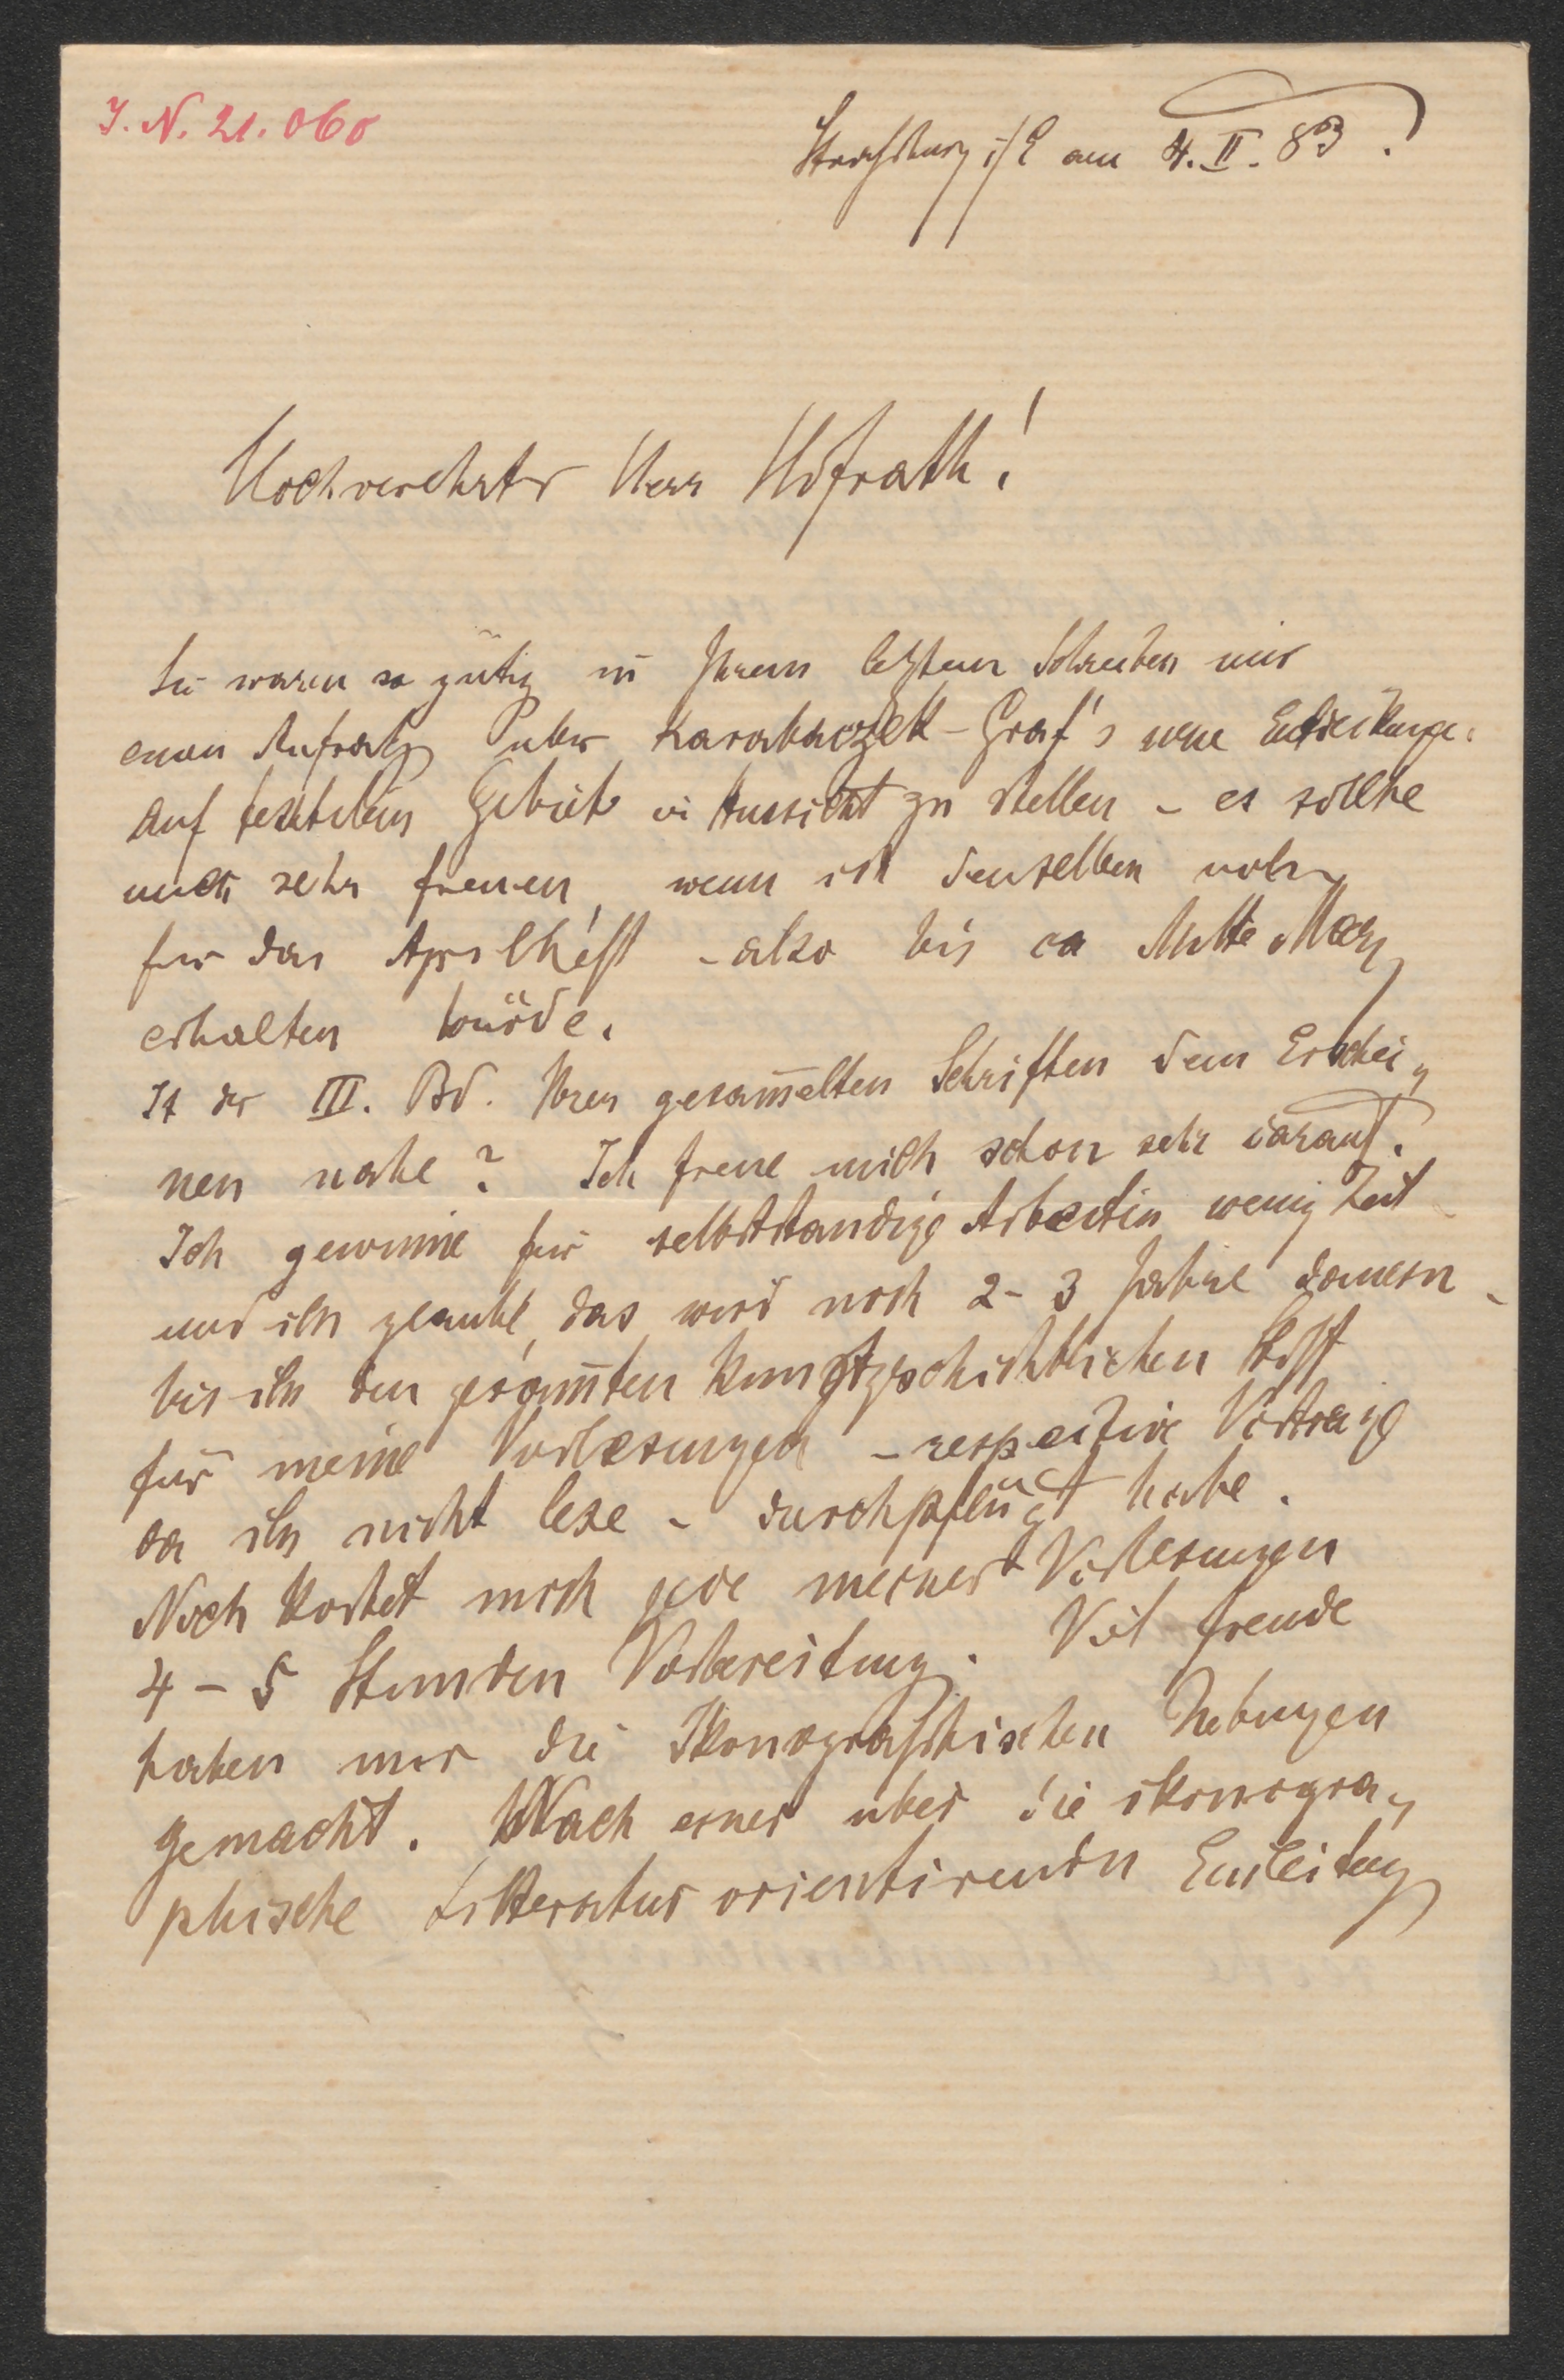 J. N. 21.060
Strassburg i/E am 4. II. 83.
Hochverehrter Herr Hofrath!
Sie waren so gütig in Ihrem letzten Schreiben mir
einen Aufsatz über Karabaczek-Graf's neue Entdeckunge.
auf textilem Gebiete in Aussicht zu stellen – es sollte
mich sehr freuen, wenn ich denselben noch
für das Aprilheft – also bis ca Mitte März
erhalten würde.
Ist der III. Bd. Ihrer gesam̅elten Schriften dem Erschei-
nen nahe? Ich freue mich schon sehr darauf.
Ich gewinne für selbstständige Arbeiten wenig Zeit –
und ich glaube, das wird noch 2–3 Jahre dauern –
bis ich den gesam̅ten kunstgeschichtlichen Stoff
für meine Vorlesungen – respective Vorträge
da ich nicht lese – durchpflügt habe.
Noch kostet mich jede meiner Vorlesungen
4–5 Stunden Vorbereitung. Viel Freude
haben mir die Ikonographischen Uebungen
gemacht. Nach einer über die ikonogra-
phische Litteratur orientirenden Einleitung